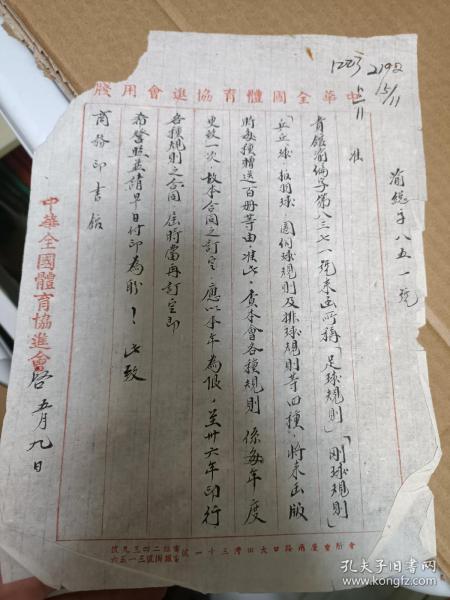 12万 2192
5/11 15/11
中華全國體育協進會用牋
渝總字八五一號
准
貴館渝編字第八三七一號來函所稱「足球規則」「剛球規則」
「乒乓球·板羽球·圍網球規則及排球規則等四種·將來出版
時每種贈送百冊等由·准此·查本會各種規則係每年度
更改一次·故本合同之訂定·應以本年為限·至卅六年印行
各種規則之合同·屆時當再訂定·即
希詧照并請早日付印為盼!此致
商務印書館
中華全國體育協進會啓 五月九日
會所重慶兩路口大田灣三十一號
電話二四三九號
電報掛號三一五六
孔夫子旧书网